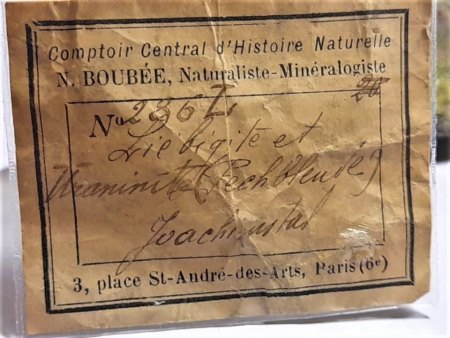 Comptoir Central d'Histoire Naturelle
N. BOUBÉE, Naturaliste-Minéralogiste
No 286
Liebigite et
Uraninite (Pechblende)
Joachimstal
3, place St-André-des-Arts, Paris (6e)